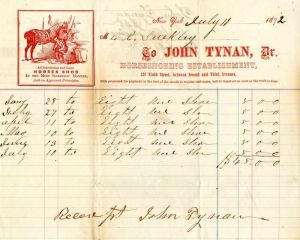 New York July 11 1892
To JOHN TYNAN, Dr.
HORSESHOEING ESTABLISHMENT,
218 Ninth Street, between Second and Third Avenues.
All Interfering and Lame
HORSES SHOD
In the Most Scientific Manner,
and on Approved Principles.
28 to Eight new Shoes 8 00
to Eight new Shoes 8 00
April 11 to Eight new Shoes 8 00
May 10 to Eight new Shoes 8 00
13 to Eight new Shoes 8 00
July 10 to Eight new Shoes 8 00
$48.00
Received pt John Tynan